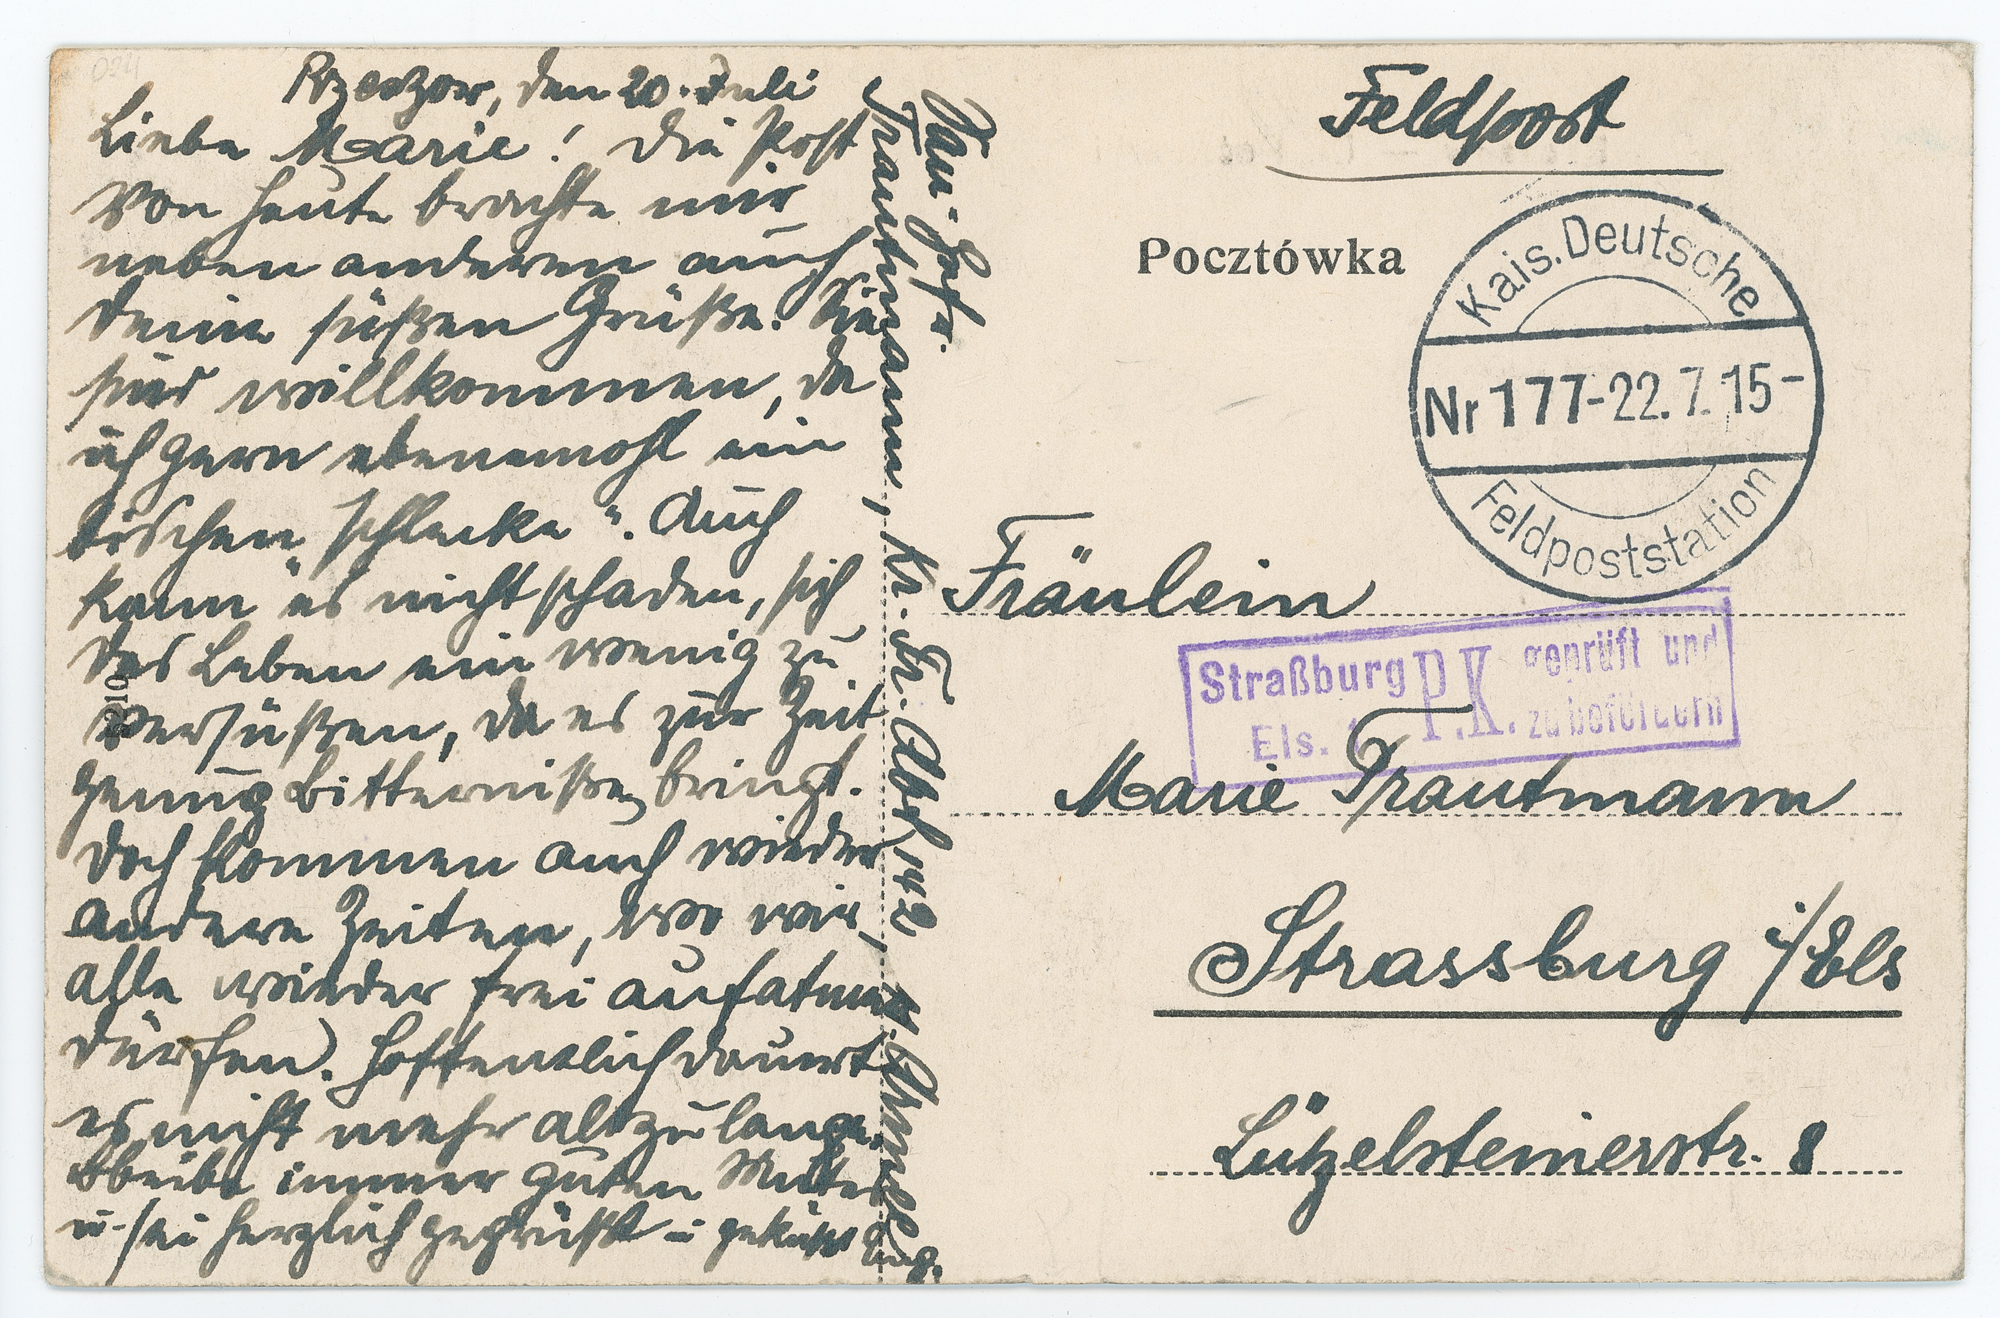 Rzeszow, den 20. Juli
Liebe Marie! Die Post
von heute brachte mir
neben anderen auch
Deine süßen Grüße. Sie
sind willkommen, da
ich gern ebenemohl ein
bischen „schlecke“. Auch
kann es nicht schaden, sich
das Leben ein wenig zu
versüßen, da es zur Zeit
genug Bitterniße bringt.
Doch kommen auch wieder
andere Zeiten, wo wir
alle wieder frei aufatmen
dürfen. Hoffentlich dauert
es nicht mehr allzulange.
Bleibe immer guten Mutes
u. sei herzlich gegrüßt u. geküßt
Trautmann, Kr. Kr. Abt. 142
Feldpost
Pocztówka
Kais. Deutsche
Nr 177-22.7.15-
Feldpoststation
Fräulein
Straßburg P.K. geprüft und
Els. 1 zu befördern
Marie Trautmann
Strassburg i/Els
Lützelsteinerstr. 8